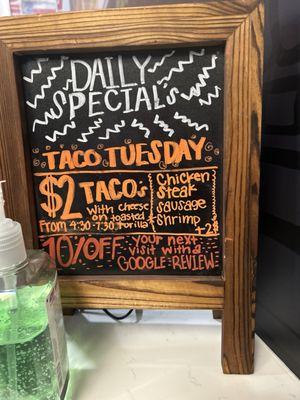 DAILY
SPECIAL's
TACO TUESDAY
$2 TACO's
With cheese
on toasted
Tortilla
From 4:30-7:30
Chicken
Steak
Sausage
Shrimp
+2$
10% OFF
Your next
visit with a
GOOGLE REVIEW